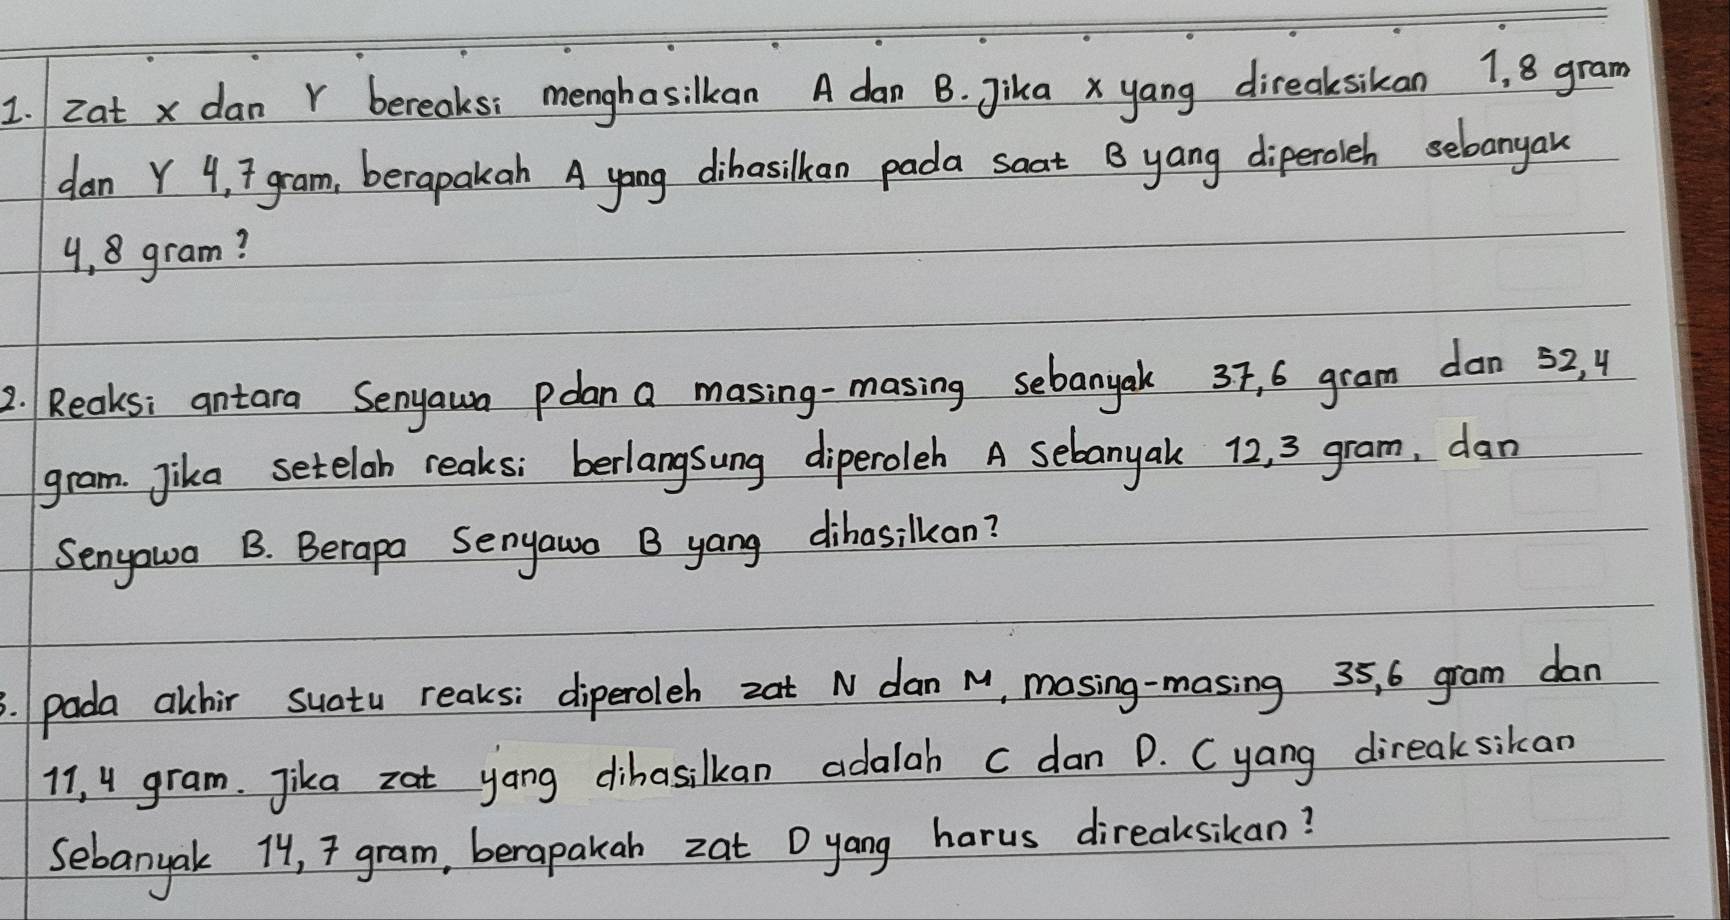 1. Zat x dan Y bereaksi menghasilkan A dan B. Jika x yang direaksikan 1,8 gram
dan Y 4,7 gram, berapakah A yang dihasilkan pada saat B yang diperoleh sebanyak
4,8 gram?
2. Reaksi antara Senyawa P dan Q masing-masing sebanyak 37,6 gram dan 52,4
gram. Jika setelah reaksi berlangsung diperoleh A sebanyak 12,3 gram, dan
Senyawa B. Berapa Senyawa B yang dihasilkan?
3. pada akhir suatu reaksi diperoleh zat N dan M, masing-masing 35,6 gram dan
11,4 gram. Jika zat yang dihasilkan adalah C dan D. C yang direaksikan
Sebanyak 14,7 gram, berapakah zat D yang harus direaksikan?